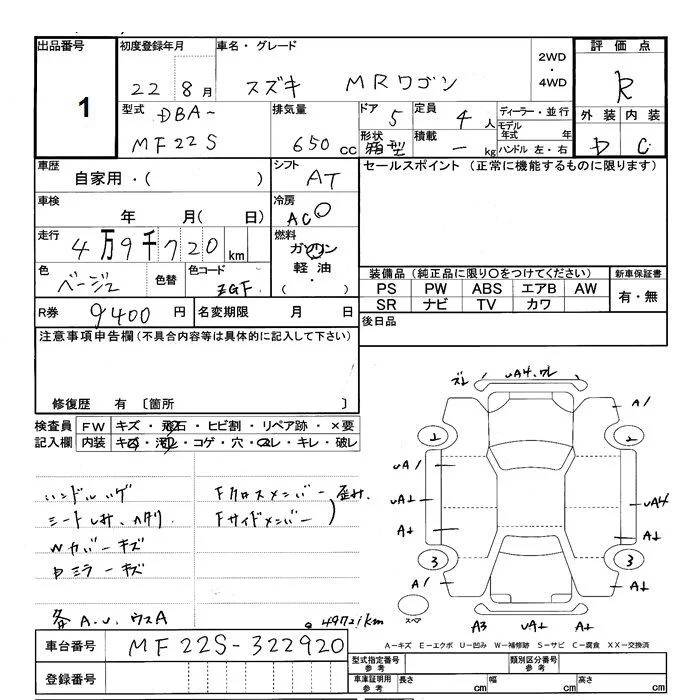 出品番号
1
初度登録年月
22 8月
車名・グレード
スズキ MRワゴン
2WD
・
4WD
評価点
R
外装 内装
D C
型式
DBA-
MF22S
排気量
650 cc
ドア 5
形状 箱型
定員 4人
積載 - kg
ディーラー・並行
モデル年式 年
ハンドル 左・右
車歴
自家用・( )
シフト
AT
車検
年 月( 日)
冷房
AC
走行
4万9千720 km
燃料
ガソリン
軽油・
( ・ )
色
ベージュ
色替
色コード
ZGF
R券 9400 円
名変期限 月 日
セールスポイント(正常に機能するものに限ります)
装備品(純正品に限り○をつけてください)
新車保証書
PS PW ABS エアB AW
SR ナビ TV カワ
有・無
後日品
注意事項申告欄(不具合内容等は具体的に記入して下さい)
修復歴 有 〔箇所 〕
検査員記入欄
FW キズ・飛石・ヒビ割・リペア跡・×要
内装 キズ・汚レ・コゲ・穴・スレ・キレ・破レ
ハンドルハゲ
Fクロスメンバー 歪み
Fサイドメンバー
Wカバーキズ
Dミラーキズ
各A.U. ウスA
49721km
A1
2
2
UA1
UA4
A1
3
3
スペア
A3
車台番号 MF22S-322920
登録番号
A-キズ E-エクボ U-凹み W-補修跡 S-サビ C-腐食 XX-交換済
型式指定番号
参考
類別区分番号
参考
車庫証明用
参考
長さ cm
幅 cm
高さ cm